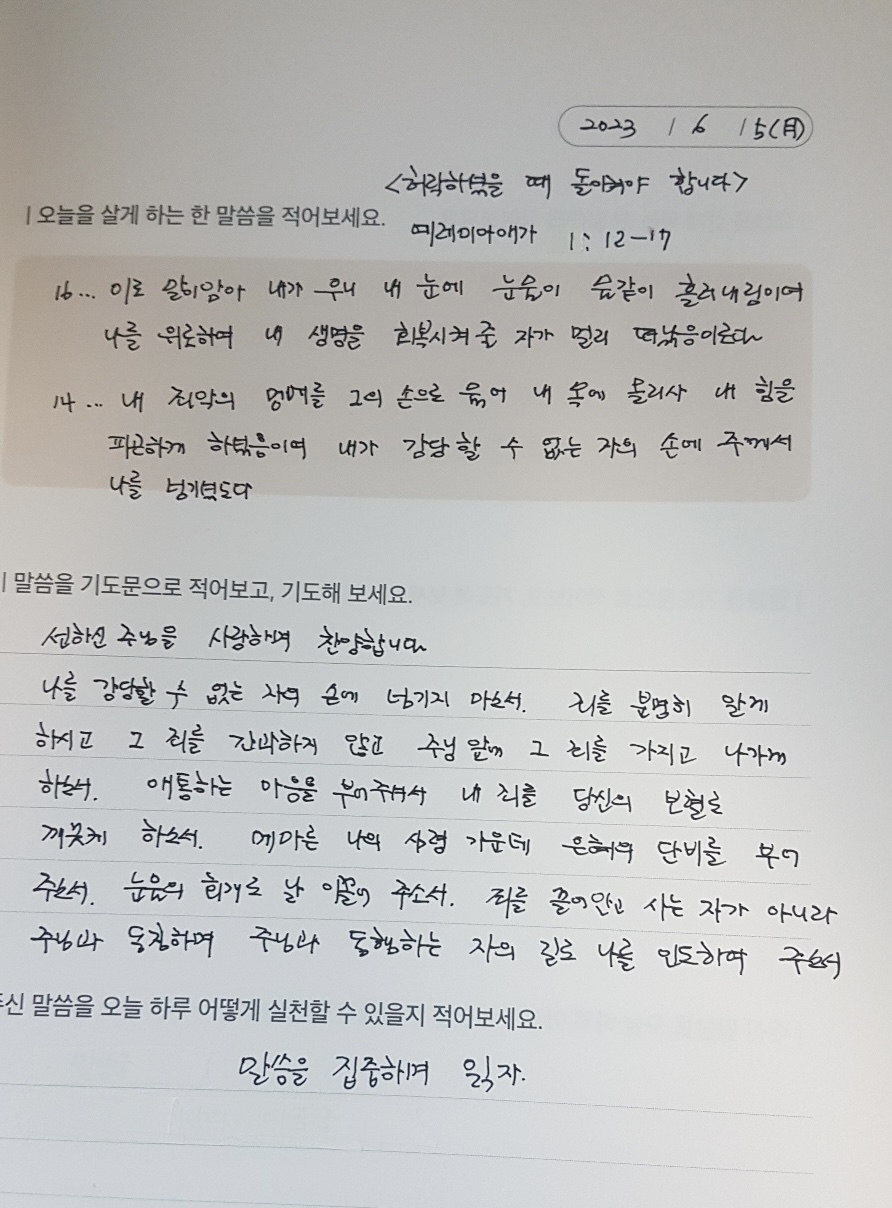 2023 / 6 / 5(月)
<허락하셨을 때 돌이켜야 합니다>
| 오늘을 살게 하는 한 말씀을 적어보세요.
예레미야애가 1: 12-17
16... 이로 말미암아 내가 우니 내 눈에 눈물이 물같이 흘러내림이여
나를 위로하여 내 생명을 회복시켜 줄 자가 멀리 떠났음이로다
14... 내 죄악의 멍에를 그의 손으로 묶어 내 목에 올리사 내 힘을
피곤하게 하셨음이여 내가 감당할 수 없는 자의 손에 주께서
나를 넘기셨도다
| 말씀을 기도문으로 적어보고, 기도해 보세요.
선하신 주님을 사랑하며 찬양합니다
나를 감당할 수 없는 자의 손에 넘기지 마소서. 죄를 분명히 알게
하시고 그 죄를 간과하지 않고 주님 앞에 그 죄를 가지고 나가게
하소서. 애통하는 마음을 부어주셔서 내 죄를 당신의 보혈로
깨끗케 하소서. 메마른 나의 심령 가운데 은혜의 단비를 부어
주소서. 눈물의 회개로 날 이끌어 주소서. 죄를 끌어안고 사는 자가 아니라
주님과 동침하며 주님과 동행하는 자의 길로 나를 인도하여 주소서
주신 말씀을 오늘 하루 어떻게 실천할 수 있을지 적어보세요.
말씀을 집중하며 읽자.